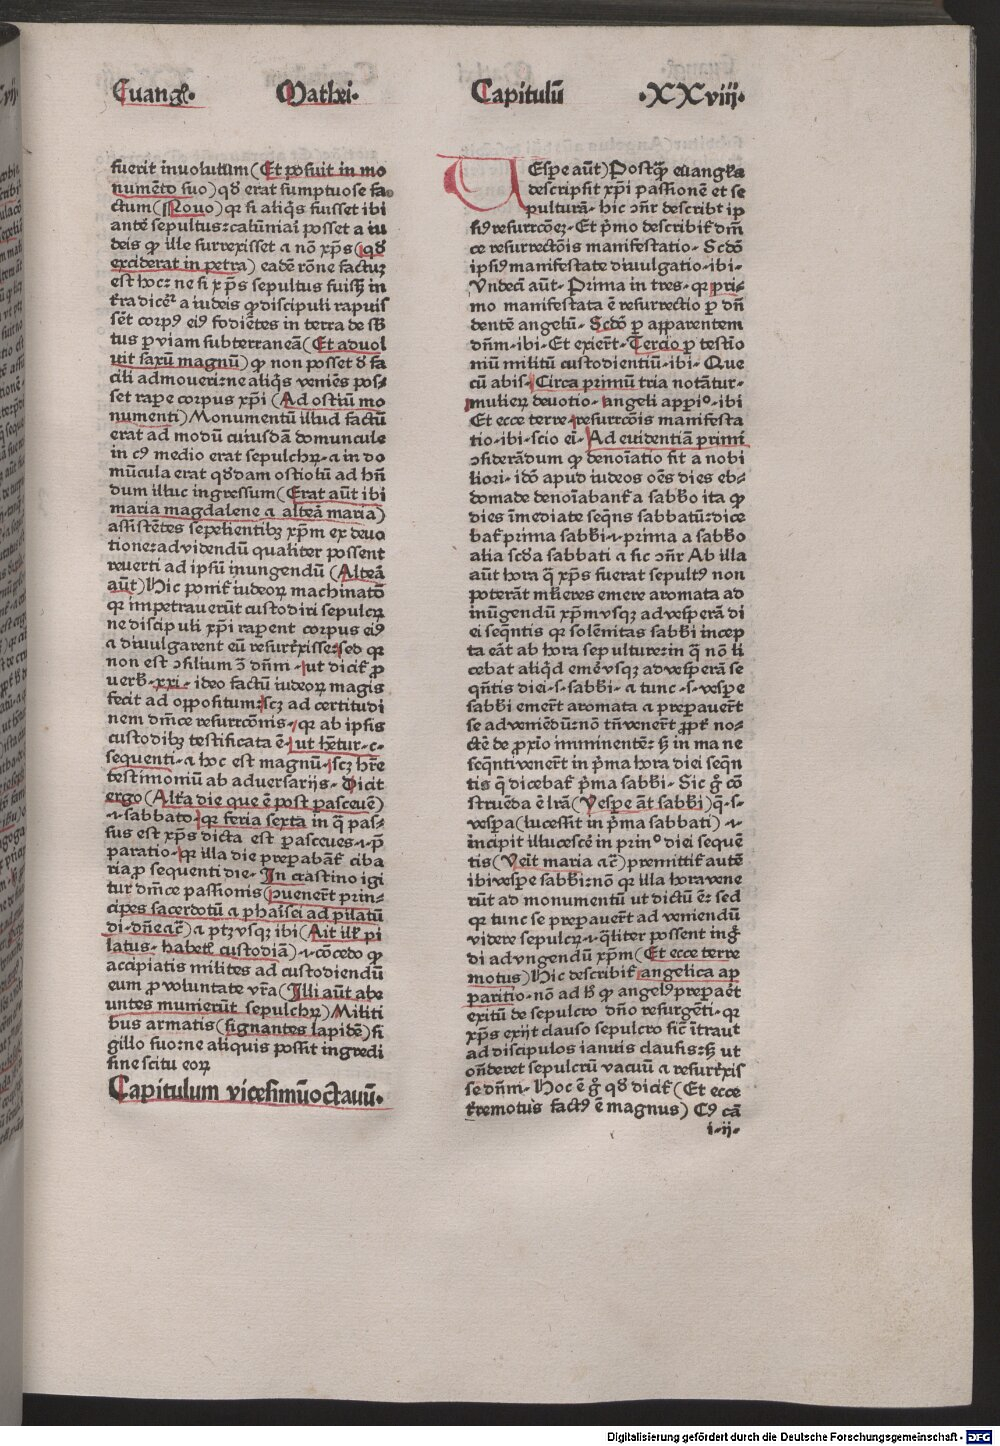 Euangł. Mathei. Capitulū .XXviij.
fuerit inuolutum (Et posuit in mo
numēto suo) qđ erat sumptuose fa
ctum (Nouo) qꝛ si aliq̄s fuisset ibi
antē sepultus: calūniaī posset a iu
deis ꝙ ille surrexisset a nō xp̄s (qđ
exciderat in petra) eadē rōne factuꝫ
est hoc: ne si xp̄s sepultus fuisꝫ in
t̄ra dicer̄t a iudeis ꝙ discipuli rapuis
sēt corpꝰ eiꝰ fodiētes in terra de sb̄
tus ꝑ viam subterraneā (Et aduol
uit saxū magnū) ꝙ non posset đ fa
cili admoueri: ne aliq̄s veniēs pos-
set rape corpus xp̄i (Ad ostiū mo
numenti) Monumentū illud factū
erat ad modū cuiusdā domuncule
in cꝰ medio erat sepulchꝝ. a in do
mūcula erat qđdam ostiolū ad hn̄
dum illuc ingressum (Erat aūt ibi
maria magdalene a alteā maria)
assistētes sepelientibꝫ xp̄m ex deuo
tione: ad videndū qualiter possent
reuerti ad ipsū inungendū (Alteā
aūt) Hic ponit̄ iudeoꝝ machinatō
qꝛ impetrauerūt custodiri sepulcꝝ
ne discipuli xp̄i rapent corpus eiꝰ
a diuulgarent eū resurrexisse: sed qꝛ
non est ꝯsilium ꝯ̄ dn̄m. ut dicit̄ ꝓ
uerb. xxi. ideo factū iudeoꝝ magis
fecit ad oppositum: scꝫ ad certitudi
nem dn̄ice resurrcōnis. qꝛ ab ipsis
custodibꝫ testificata ē. ut hētur. c.
sequenti. a hoc est magnū. scꝫ hr̄e
testimoniū ab aduersarijs. Dicit
ergo (Alt̄a die que ē post pasceuē)
.i. sabbato. qꝛ feria sexta in q̄ pas-
sus est xp̄s dicta est pasceues. i. p̄
paratio. qꝛ illa die preparabāt̄ ciba
ria ꝓ sequenti die. In crastino igi
tur dn̄ice passionis (ꝯuenerūt prin-
cipes sacerdotū a pharisei ad pilatū
di. dn̄e aꝛ̄c) a ptꝫ vsqꝫ ibi (Ait ill' pi
latus. habet̄ custodiā) .i. cōcedo ꝙ
accipiatis milites ad custodiendū
eum ꝓ voluntate vr̄a (Illi aūt abe
untes munierūt sepulchꝝ) Militi
bus armatis (signantes lapidē) si
gillo suo: ne aliquis possit ingredi
sine scitu eoꝝ
Capitulum vicesimūoctauū.
VEspe aūt) Postꝙ̄ euangl̄sa
descripsit xp̄i passionē et se
pulturā. hic ꝯn̄r describt ip
siꝰ resurrcōeꝫ. Et p̄mo describit̄ dn̄i
ce resurrectōis manifestatio. Scđo
ipsiꝰ manifestate diuulgatio. ibi.
Vndeci aūt. Prima in tres. qꝛ pri-
mo manifestata ē resurrectio ꝑ dn̄
dentē angelū. Scđo ꝑ apparentem
dn̄m. ibi. Et exier̄t. Tercio ꝑ testio
niū militū custodientiū. ibi. Que
cū abis. Circa primū tria notātur.
mulieꝝ deuotio. angeli appi°. ibi
Et ecce terre. resurrcōis manifesta
tio. ibi. scio ei. Ad euidentiā primi
ꝯsiderādum ꝙ denoīatio fit a nobi
liori. idō apud iudeos oēs dies eb-
domade denoīabant̄ a sabbo ita ꝙ
dies īmediate seqn̄s sabbatū: dice
bat̄ prima sabbi. i. prima a sabbo
alia scđa sabbati a sic ꝯn̄r Ab illa
aūt hora q̄ xp̄s fuerat sepultꝰ non
poterāt mlieres emere aromata ad
inūgendū xp̄m vsqꝫ ad vesperā di
ei seqn̄tis qꝛ solēnitas sabbi incep
ta eāt ab hora sepulture: in q̄ nō li
cebat aliqđ emē vsqꝫ ad vesperā se
qn̄tis diei. s. sabbi. a tunc. s. vespe
sabbi emer̄t aromata a prepauer̄t
se ad veniēdū: nō tn̄ vener̄t ꝓpt̄ no-
ctē de ꝓxīo imminentē: sꝫ in ma ne
seqn̄ti vener̄t in p̄ma hora diei seqn̄
tis q̄ dicebat̄ p̄ma sabbi. Sic ḡ cō
struēda ē lr̄a (Vespe aūt sabbi) q̄. s.
vespa (lucessit in p̄ma sabbati) .i.
incipit illucescē in prin° diei sequē
tis (Veīt maria aꝛ̄c) premittit̄ autē
ibi vespe sabbi: nō qꝛ illa hora vene
rūt ad monumentū ut dictū ē: sed
qꝛ tunc se prepauer̄t ad veniendū
videre sepulcꝝ. i. q̄liter possent inḡ
di ad vngendū xp̄m (Et ecce terre
motus) Hic describit̄ angelica ap
paritio. nō ad hꝫ ꝙ angelꝰ prepaēt
exitū de sepulcro dn̄o resurgēti. qꝛ
xp̄s exijt clauso sepulcro sic̄ īt̄raut
ad discipulos ianuis clausis: sꝫ ut
on̄deret sepulcrū vacuū a resurrexis
se dn̄m. Hoc ē ḡ qđ dicit̄ (Et ecce
t̄remotus factꝰ ē magnus) Cꝰ cā
i.ij.
Digitalisierung gefördert durch die Deutsche Forschungsgemeinschaft - DFG